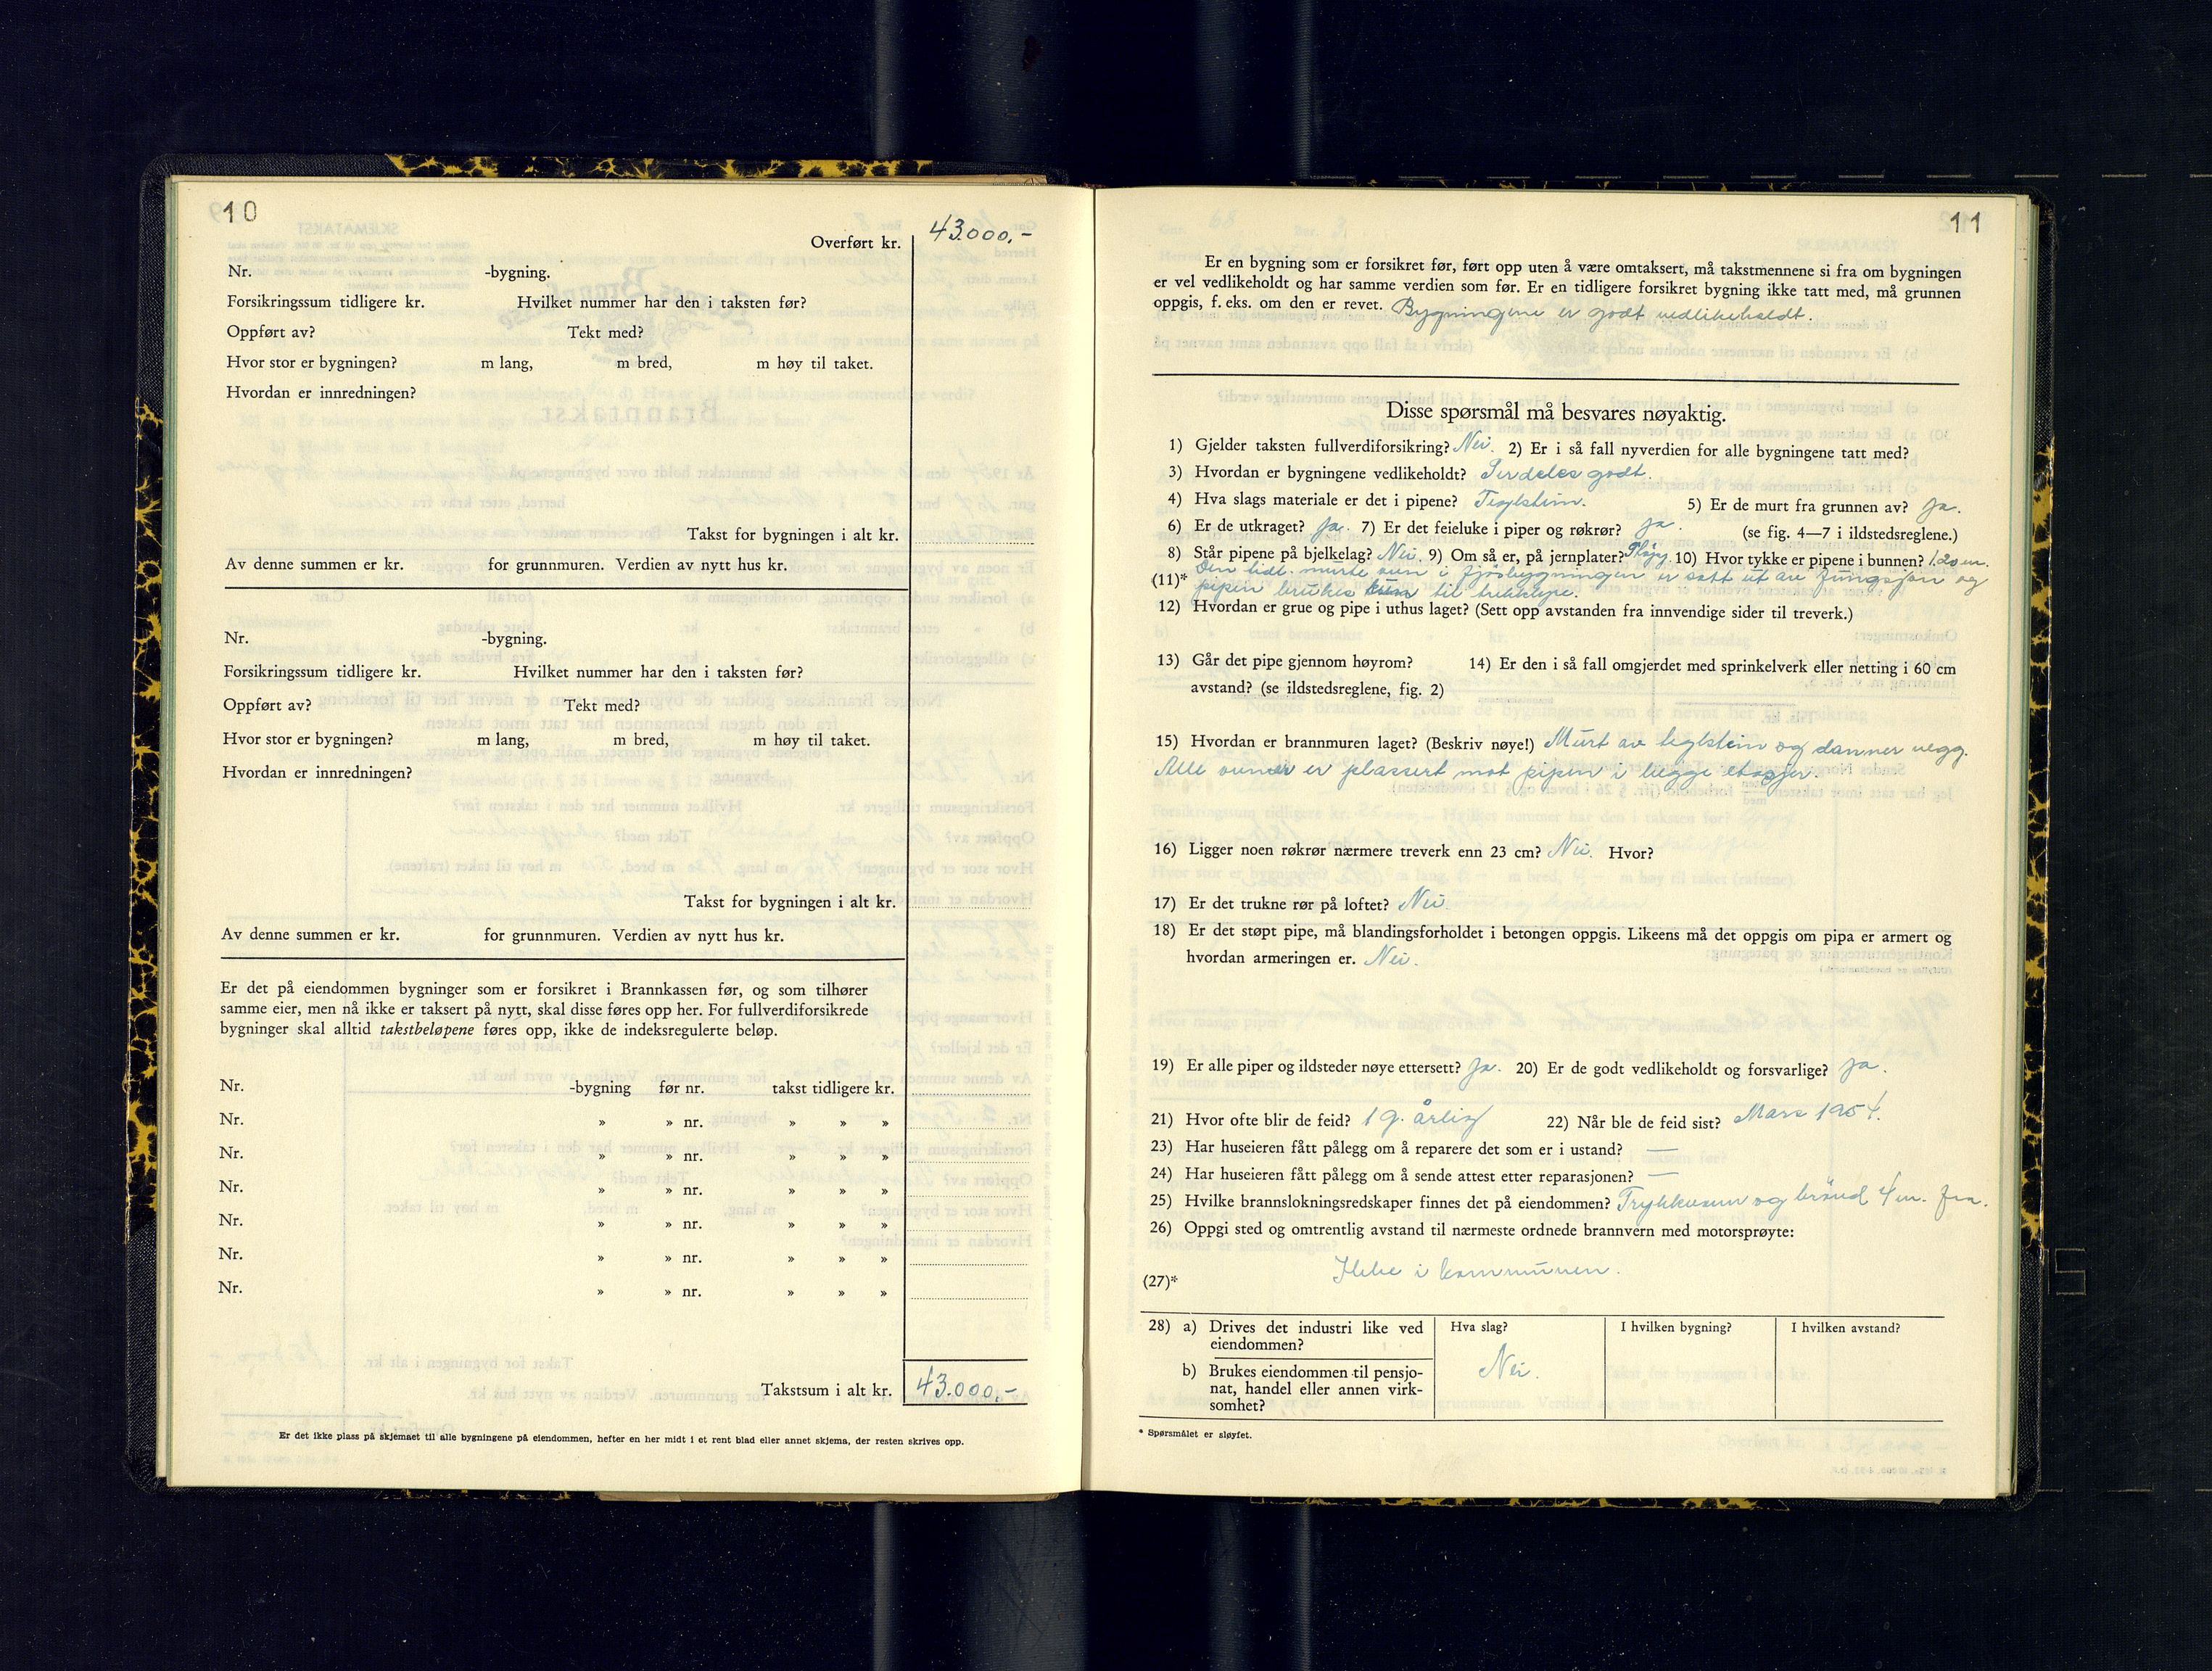 10
Overført kr. 43.000,-
Nr. -bygning.
Forsikringssum tidligere kr. Hvilket nummer har den i taksten før?
Oppført av? Tekt med?
Hvor stor er bygningen? m lang, m bred, m høy til taket.
Hvordan er innredningen?
Takst for bygningen i alt kr.
Av denne summen er kr. for grunnmuren. Verdien av nytt hus kr.
Nr. -bygning.
Forsikringssum tidligere kr. Hvilket nummer har den i taksten før?
Oppført av? Tekt med?
Hvor stor er bygningen? m lang, m bred, m høy til taket.
Hvordan er innredningen?
Takst for bygningen i alt kr.
Av denne summen er kr. for grunnmuren. Verdien av nytt hus kr.
Er det på eiendommen bygninger som er forsikret i Brannkassen før, og som tilhører
samme eier, men nå ikke er taksert på nytt, skal disse føres opp her. For fullverdiforsikrede
bygninger skal alltid takstbeløpene føres opp, ikke de indeksregulerte beløp.
Nr. -bygning før nr. takst tidligere kr.
Nr. » » nr. » » »
Nr. » » nr. » » »
Nr. » » nr. » » »
Nr. » » nr. » » »
Nr. » » nr. » » »
Nr. » » nr. » » »
Takstsum i alt kr. 43.000,-
Er det ikke plass på skjemaet til alle bygningene på eiendommen, hefter en her midt i et rent blad eller annet skjema, der resten skrives opp.
11
Er en bygning som er forsikret før, ført opp uten å være omtaksert, må takstmennene si fra om bygningen
er vel vedlikeholdt og har samme verdien som før. Er en tidligere forsikret bygning ikke tatt med, må grunnen
oppgis, f. eks. om den er revet. Bygningene er godt vedlikeholdt.
Disse spørsmål må besvares nøyaktig.
1) Gjelder taksten fullverdiforsikring? Nei. 2) Er i så fall nyverdien for alle bygningene tatt med?
3) Hvordan er bygningene vedlikeholdt? Serdeles godt.
4) Hva slags materiale er det i pipene? Teglstein. 5) Er de murt fra grunnen av? Ja.
6) Er de utkraget? Ja. 7) Er det feieluke i piper og røkrør? Ja. (se fig. 4—7 i ildstedsreglene.)
8) Står pipene på bjelkelag? Nei. 9) Om så er, på jernplater? 10) Hvor tykke er pipene i bunnen? 1.20 m.
Den tidl. murte ovn i fjösbygningen er satt ut av funksjon og
(11)* pipen brukes kun til trekkpipe.
12) Hvordan er grue og pipe i uthus laget? (Sett opp avstanden fra innvendige sider til treverk.)
13) Går det pipe gjennom høyrom? 14) Er den i så fall omgjerdet med sprinkelverk eller netting i 60 cm
avstand? (se ildstedsreglene, fig. 2)
15) Hvordan er brannmuren laget? (Beskriv nøye!) Murt av teglstein og danner vegg.
Alle ovner er plassert mot pipen i begge etasjer.
16) Ligger noen røkrør nærmere treverk enn 23 cm? Nei. Hvor?
17) Er det trukne rør på loftet? Nei.
18) Er det støpt pipe, må blandingsforholdet i betongen oppgis. Likeens må det oppgis om pipa er armert og
hvordan armeringen er. Nei.
19) Er alle piper og ildsteder nøye ettersett? Ja. 20) Er de godt vedlikeholdt og forsvarlige? Ja.
21) Hvor ofte blir de feid? 1 g. årlig 22) Når ble de feid sist? Mars 1954.
23) Har huseieren fått pålegg om å reparere det som er i ustand? —
24) Har huseieren fått pålegg om å sende attest etter reparasjonen? —
25) Hvilke brannslokningsredskaper finnes det på eiendommen? Trykkvann og brönd 4 m. fra.
26) Oppgi sted og omtrentlig avstand til nærmeste ordnede brannvern med motorsprøyte:
(27)* Ikke i kommunen.
28) a) Drives det industri like ved
eiendommen?
b) Brukes eiendommen til pensjo-
nat, handel eller annen virk-
somhet?
Hva slag?
Nei.
I hvilken bygning?
I hvilken avstand?
* Spørsmålet er sløyfet.